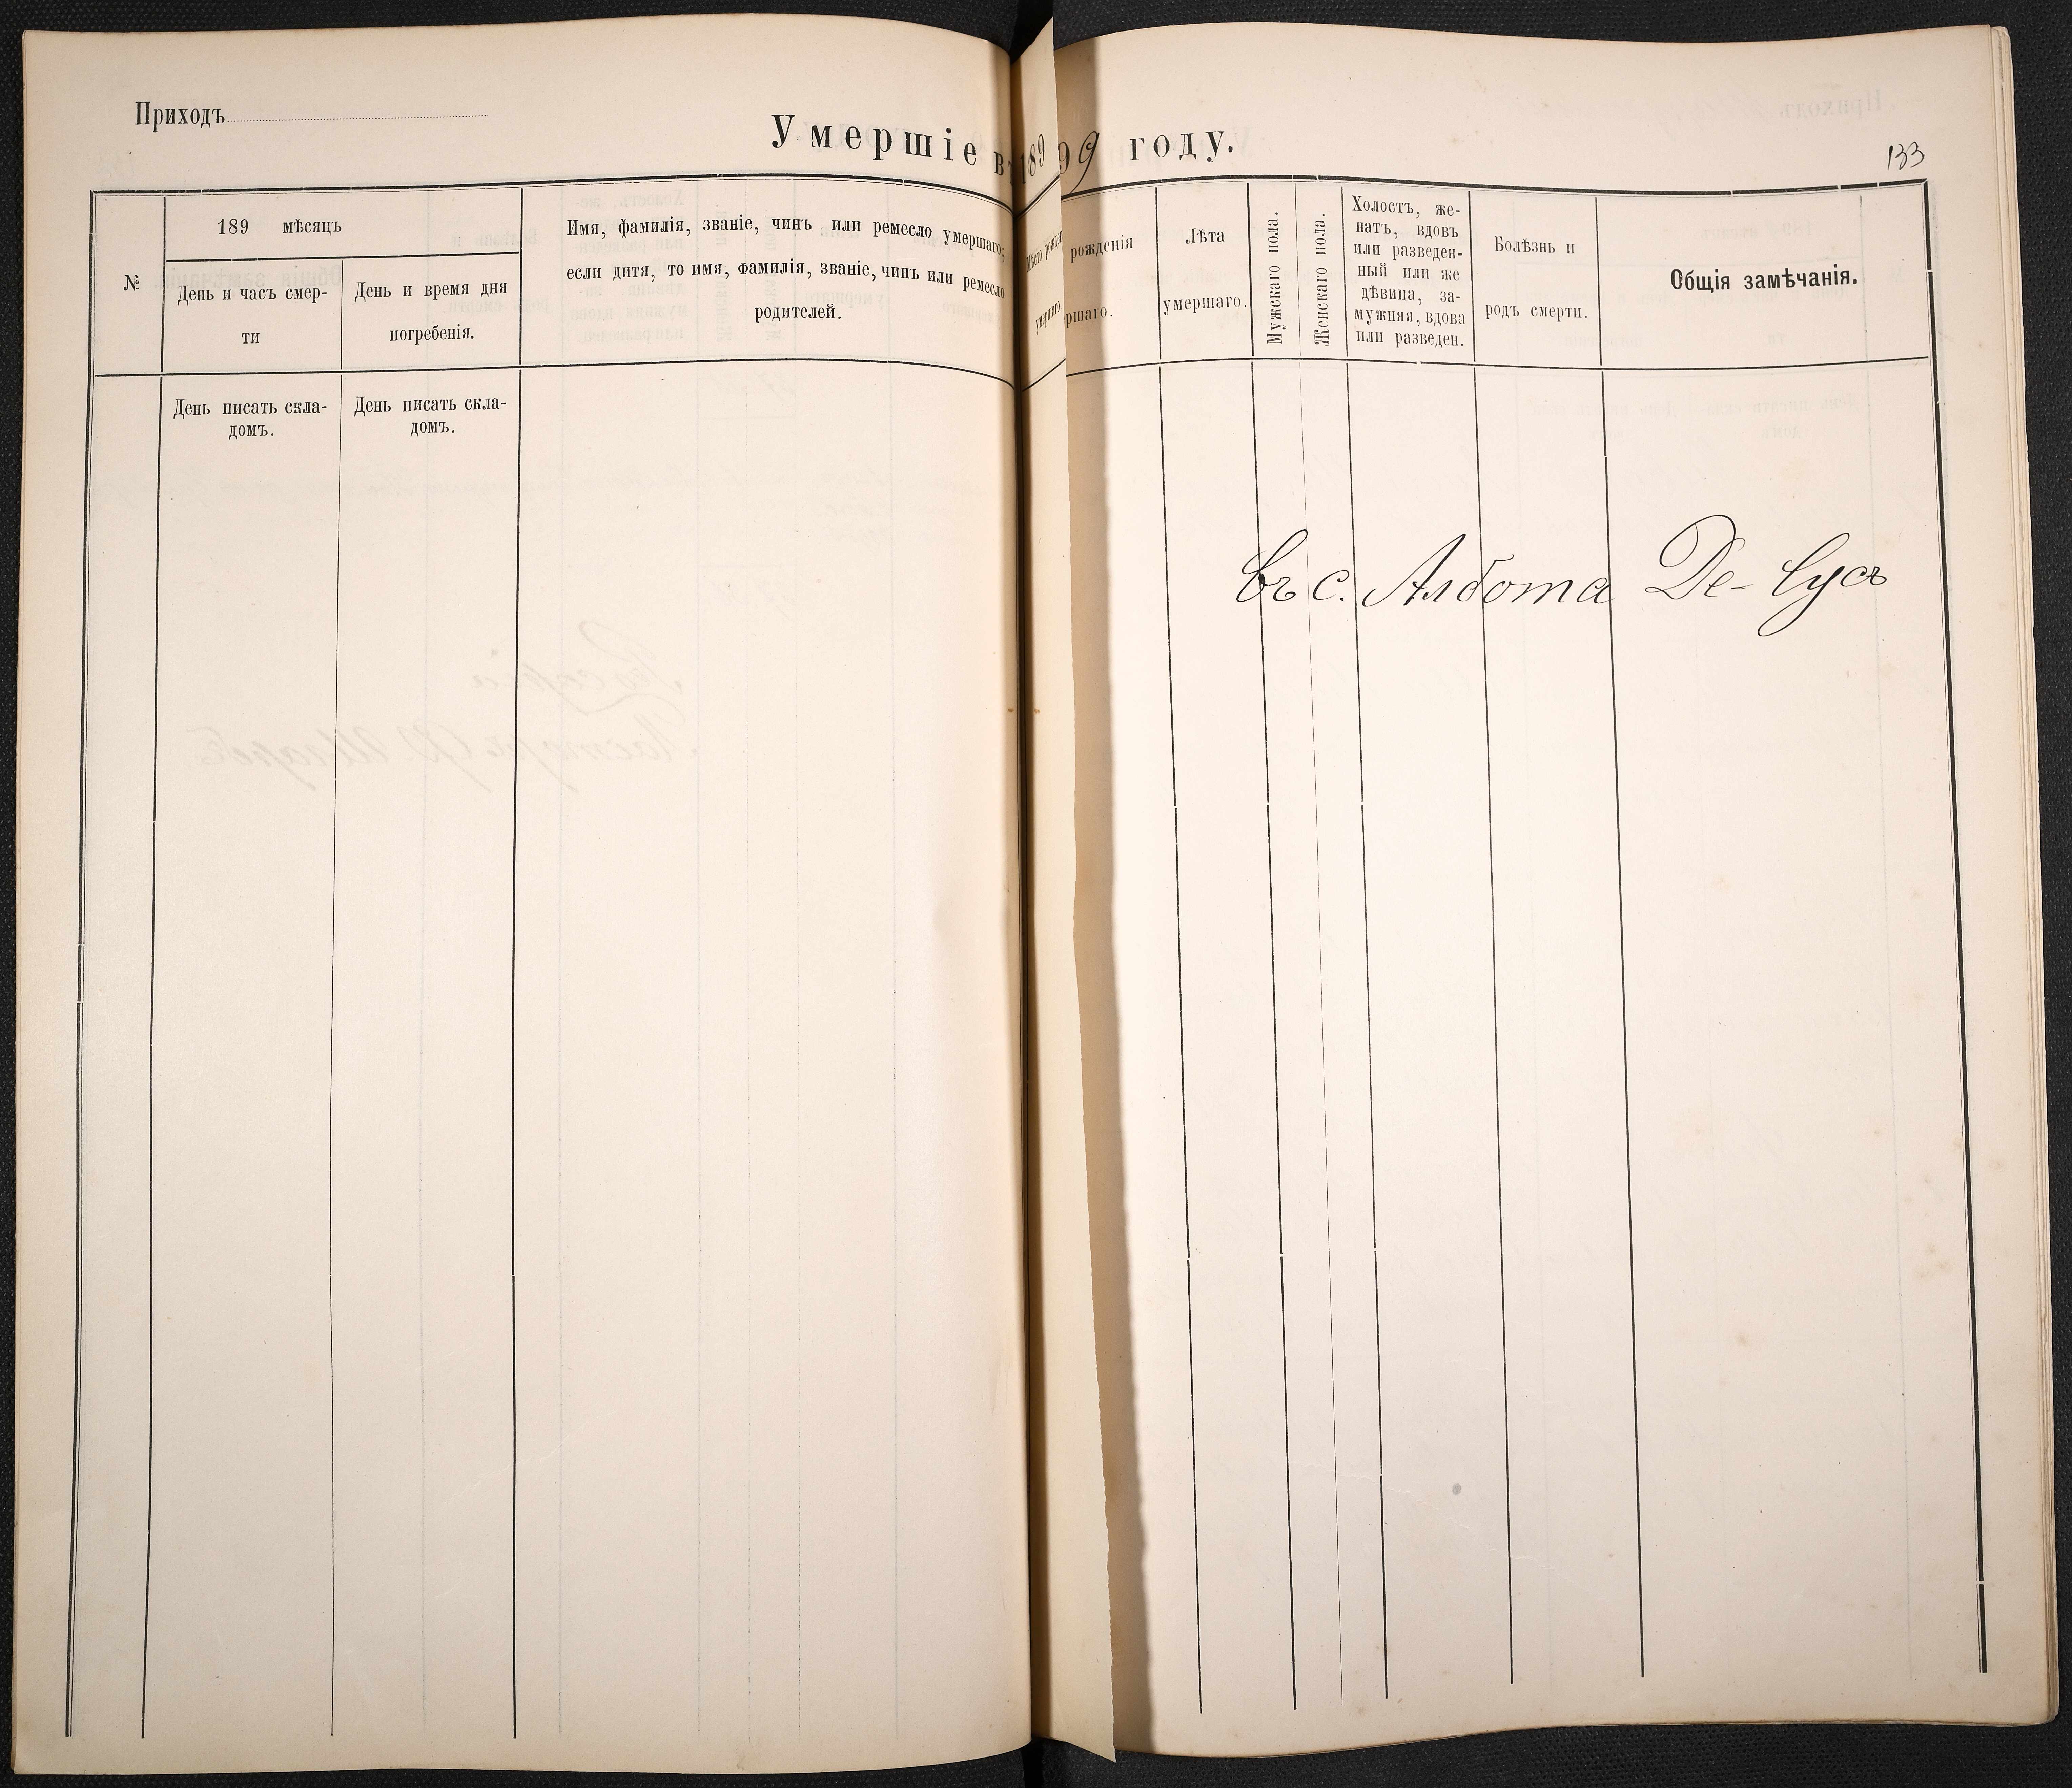 Приходъ
Умершіе въ 1899 году.
133
№
189 мѣсяцъ
День и часъ смер-
ти
День и время дня
погребенія.
Имя, фамилія, званіе, чинъ или ремесло умершаго;
если дитя, то имя, фамилія, званіе, чинъ или ремесло
родителей.
Мѣсто рожденія
умершаго.
Лѣта
умершаго.
Мужскаго пола.
Женскаго пола.
Холостъ, же-
натъ, вдовъ
или разведен-
ный или же
дѣвица, за-
мужняя, вдова
или разведен.
Болѣзнь и
родъ смерти.
Общія замѣчанія.
День писать скла-
домъ.
День писать скла-
домъ.
Въ с. Албота Де-Сусъ